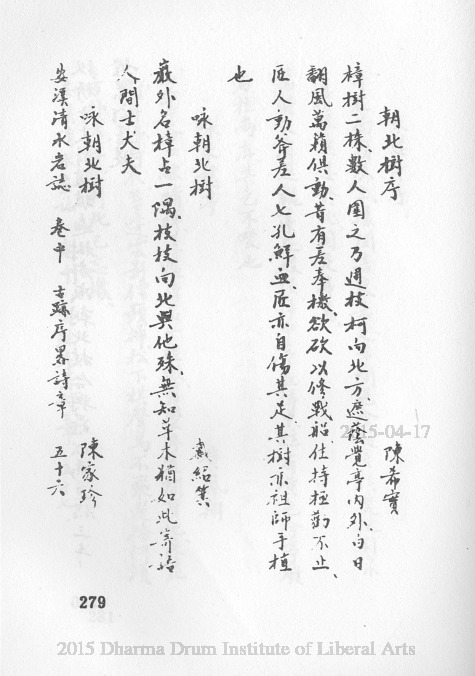 朝北樹序 陳希實
樟樹二株、數人圍之乃週、枝柯向北方、遮蔭覺亭內外、白日
翻風、萬籟俱動、昔有差奉檄、欲砍以修戰船、住持極勸不止、
匠人動斧、差人七孔鮮血、匠亦自傷其足、其樹係祖師手植
也
咏朝北樹 戴紹箕
巖外名樟占一隅、枝枝向北與他殊、無知草木猶如此、寄語
人間士大夫
咏朝北樹 陳家珍
安溪清水岩誌 卷中 古蹟序畧詩章 五十六
279
2015-04-17
2015 Dharma Drum Institute of Liberal Arts